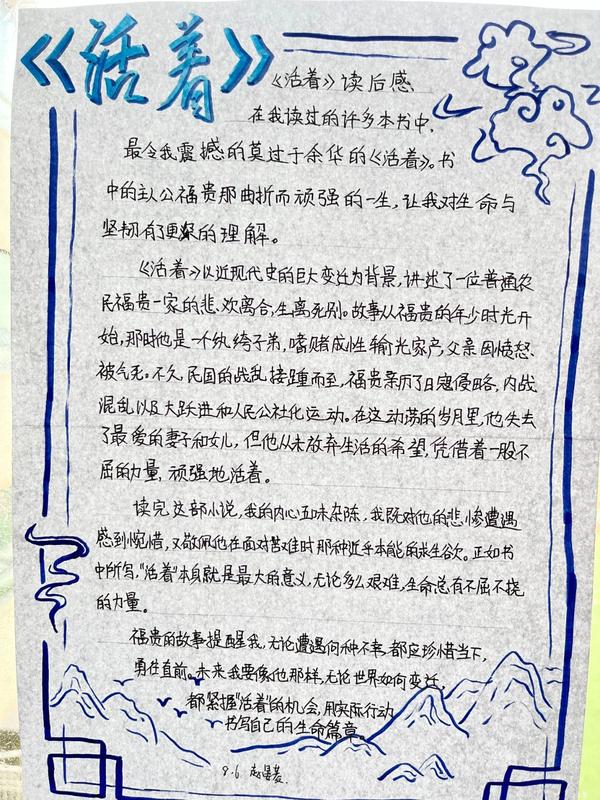 《活着》
《活着》读后感
在我读过的许多本书中,
最令我震撼的莫过于余华的《活着》。书
中的主人公福贵那曲折而顽强的一生,让我对生命与
坚韧有了更深的理解。
《活着》以近现代史的巨大变迁为背景,讲述了一位普通农
民福贵一家的悲欢离合,生离死别。故事从福贵的年少时光开
始,那时他是一个纨绔子弟,嗜赌成性输光家产,父亲因愤怒
被气死。不久,民国的战乱接踵而至,福贵亲历了日寇侵略,内战
混乱以及大跃进和人民公社化运动。在这动荡的岁月里,他失去
了最爱的妻子和女儿,但他从未放弃生活的希望,凭借着一股不
屈的力量,顽强地活着。
读完这部小说,我的内心五味杂陈,我既对他的悲惨遭遇
感到惋惜,又敬佩他在面对苦难时那种近乎本能的求生欲。正如书
中所写,"活着"本身就是最大的意义,无论多么艰难,生命总有不屈不挠
的力量。
福贵的故事提醒我,无论遭遇何种不幸,都应珍惜当下,
勇往直前。未来我要像他那样,无论世界如何变迁,
都紧握"活着"的机会,用实际行动
书写自己的生命篇章。
9.6